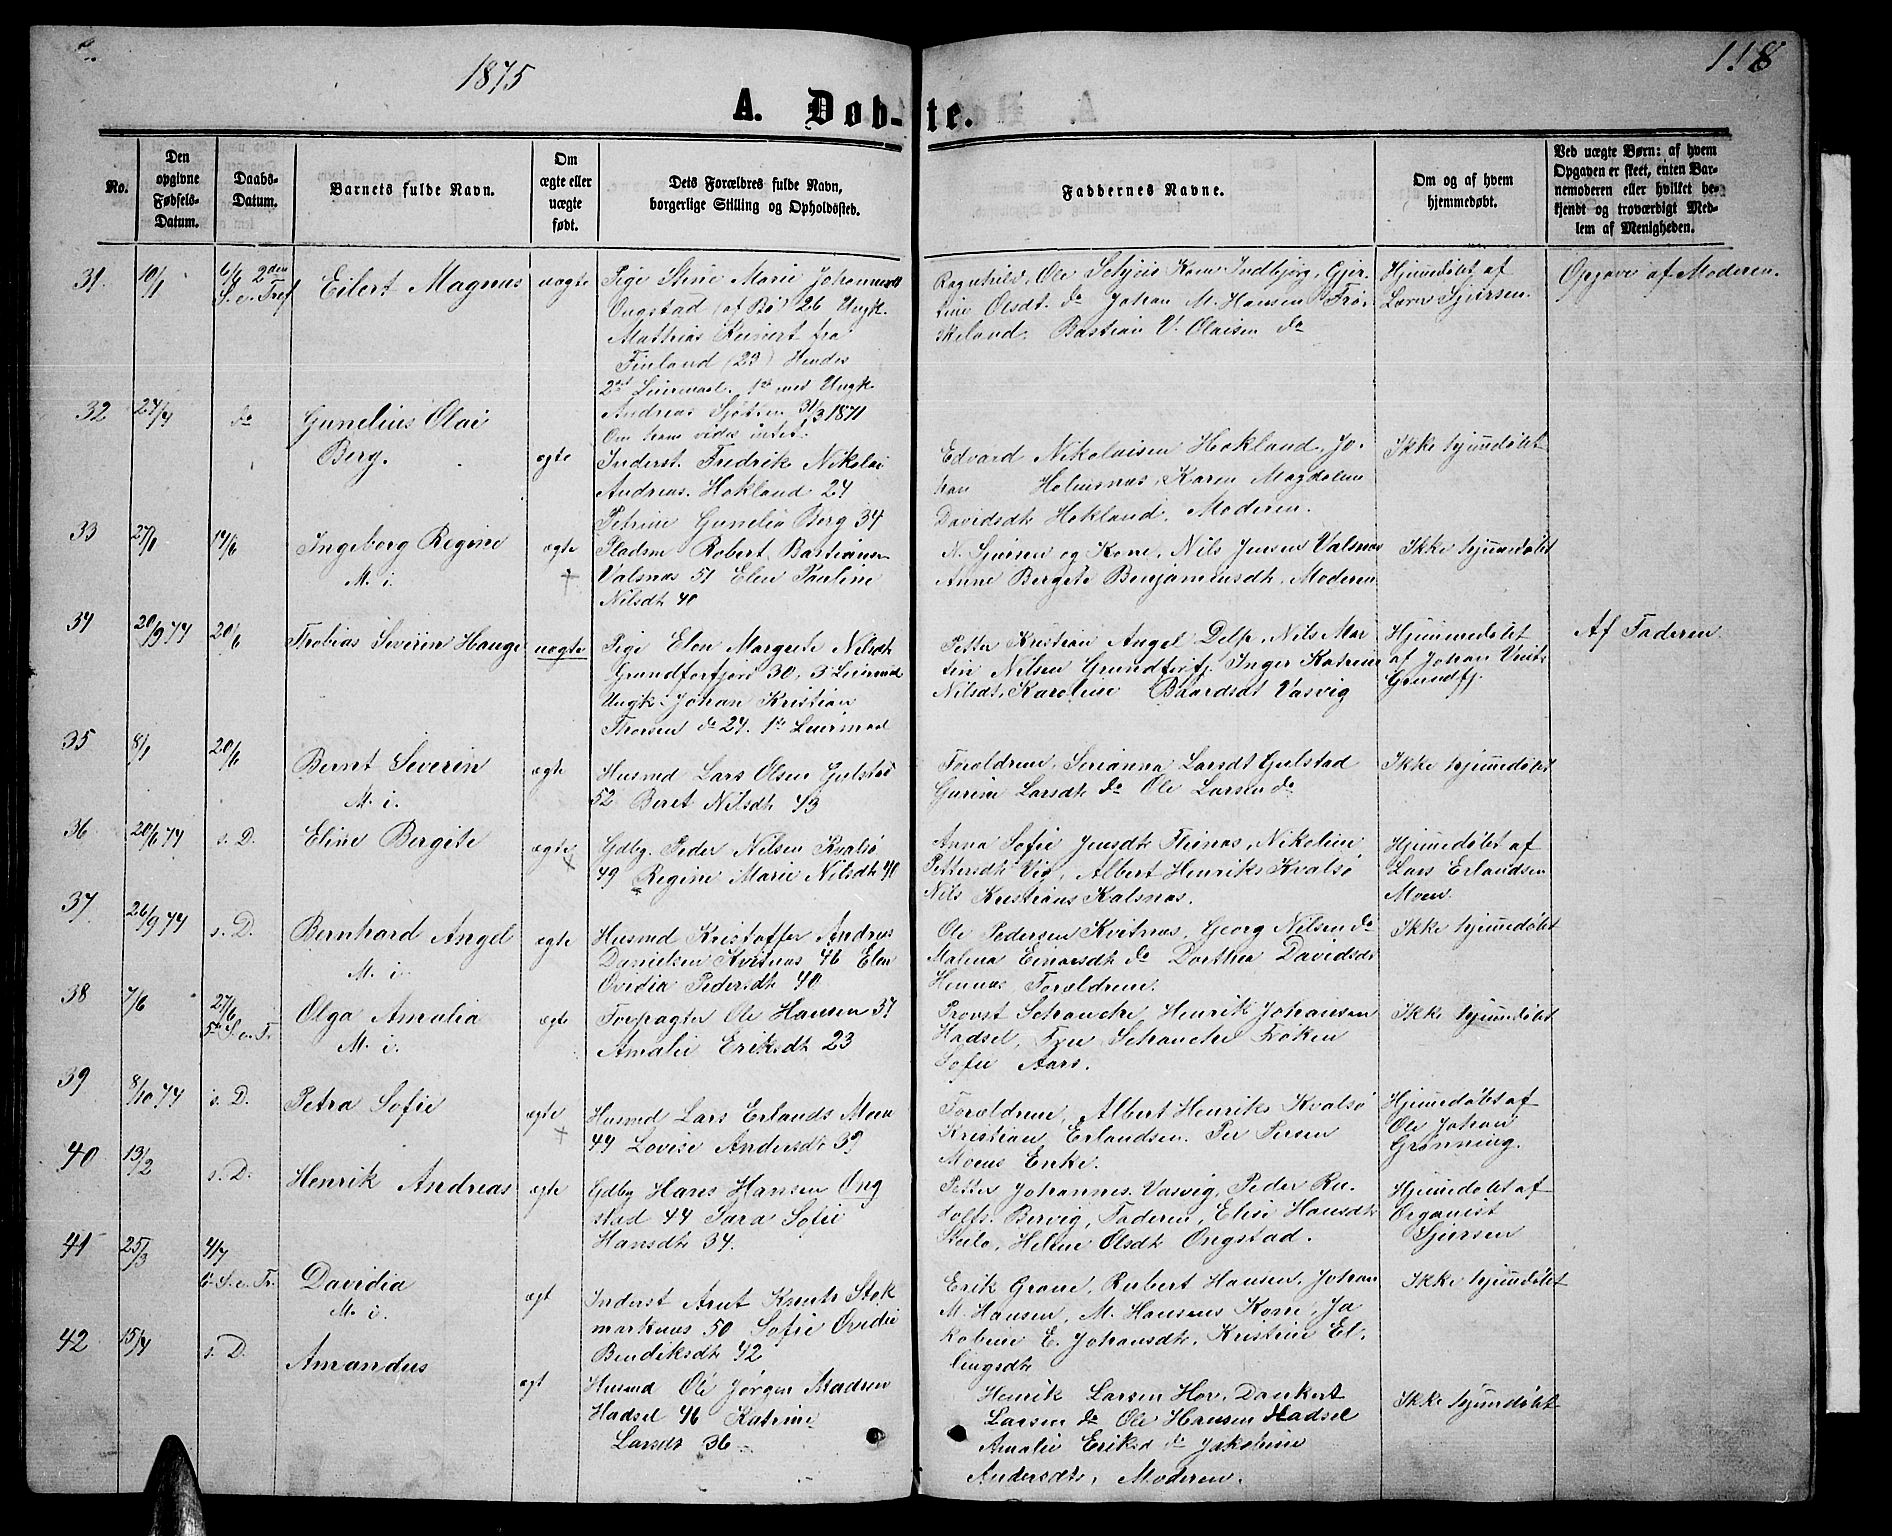 1875
118
A. Døb-te.
No.
Den opgivne Fødsels-Datum.
Daabs-Datum.
Barnets fulde Navn.
Om ægte eller uægte født.
Dets Forældres fulde Navn, borgerlige Stilling og Opholdssted.
Faddernes Navne.
Om og af hvem hjemmedøbt.
Ved uægte Børn: af hvem Opgaven er skeet, enten Barnemoderen eller hvilket bekjendt og troværdigt Medlem af Menigheden.
31 10/1 6/6 2den S. e. Tref Eilert Magnus uægte
Pige Stine Marie Johannesdt
Ongstad (af Bø) 26 Ungk.
Mathias fra
Finland (29) Hendes
2det Leiermaal, 1te med Ungk.
Andreas 31/3 1871
Om ham vides intet.
Ragnhild, Ole Kone Indbjørg, Gjer-
tine Olsdt. do Johan M. Hansen Frø-
skeland. Bastian V. Olaisen do
Hjemmedøbt af
Lærer Sjursen.
Opgave af Moderen.
32 24/4 do Gunelius Olai
Berg. ægte
Inderst. Fredrik Nikolai
Andreas. Hokland 24
Petrine Gunelia Berg 34
Edvard Nikolaisen Hokland, Jo-
han Holmsnas, Karen Magdalene
Davidsdt Hokland. Moderen.
Ikke hjemmedøbt
33 27/1 14/6 Ingeborg Regine
M. i. ægte
Pladsm Robert Bastiansen
Valsnas 51 Elen Pauline
Nilsdt 40
N. Sjursen og Kone, Nils Jensen Valsnas
Anne Bergete Benjaminsdt, Moderen
Ikke hjemmedøbt
34 20/9 74 20/6 Thobias Severin Hauge uægte
Pige Elen Margrete Nilsdt
Grundforfjord 30, 3 Leiermaal
Ungk. Johan Kristian
Thorsen do 24. 1te Leiermaal
Petter Kristian Angel Delp, Nils Mar-
tin Nilsen Grundforfj. Inger Katrine
Nilsdt, Karoline Baardsdt Vasvig
Hjemmedøbt
af Johan
Grundfj.
Af Faderen.
35 8/1 20/6 Bernt Severin
M. i. ægte
Husmd Lars Olsen Gulstad
52 Beret Nilsdt 43
Forældrene, Serianna Larsdt Gulstad
Gurine Larsdt do Ole Larsen do
Ikke hjemmedøbt
36 20/6 74 s. D. Eline Bergite ægte
Gdbg. Peder Nilsen Kvalsø
49 Regine Marie Nilsdt 40
Anna Sofie Jensdt Flesnas, Nikoline
Pettersdt Vig, Albert Henriks Kvalsø
Nils Kristians Kalsnas.
Hjemmedøbt af
Lars Erlandsen
Moen.
37 26/9 74 s. D. Bernhard Angel
M. i. ægte
Husmd Kristoffer Andreas
Danielsen Kvitnas 46 Elen
Ovidia Pedersdt 40
Ole Pedersen Kvitnas, Georg Nilsen do
Malena Einarsdt do Dorthea Davidsdt
Hennas, Forældrene.
Ikke hjemmedøbt
38 7/6 27/6 5te S. e. Tr. Olga Amalia
M. i. ægte
Forpagter Ole Hansen 37
Amalie Eriksdt 23
Provst Schanche, Henrik Johansen
Hadsel, Fru Schanche Frøken
Sofie Aars.
Ikke hjemmedøbt
39 8/10 74 s. D. Petra Sofie ægte
Husmd Lars Erlands Moen
44 Lovise Andersdt 39
Forældrene, Albert Henriks Kvalsø
Kristian Erlandsen. Per Persen
Moens Enke.
Hjemmedøbt af
Ole Johan
Grønning.
40 13/2 s. D. Henrik Andreas ægte
Gdbg Hans Hansen Ong
stad 44 Sara Sofie
Hansdt 34.
Petter Johannes. Vasvig, Peder Ru-
dolfs. Bervig, Faderen, Elise Hansdt
Helene Olsdt Ongstad.
Hjemmedøbt af
Organist
Sjursen
41 25/3 4/7 6. S. e. Tr. Davidia
M. i. ægt
Inderst Arnt Knuts Stok
marknas 50 Sofie Ovidie
Bendiksdt 42
Erik Grane, Rubert Hansen, Johan
M. Hansen, M. Hansens Kone, Ja
kobine E. Johansdt, Kristine El-
lingsdt
Ikke hjemmedøbt
42 15/4 s. D. Amandus ægt
Husmd Ole Jørgen Madsen
Hadsel 46 Katrine
Larsdt 36
Henrik Larsen Hov, Dankert
Larsen do Ole Hansen Hadsel
Amalie Eriksd do Jakobine
Andersdt, Moderen.
Ikke hjemmedøbt